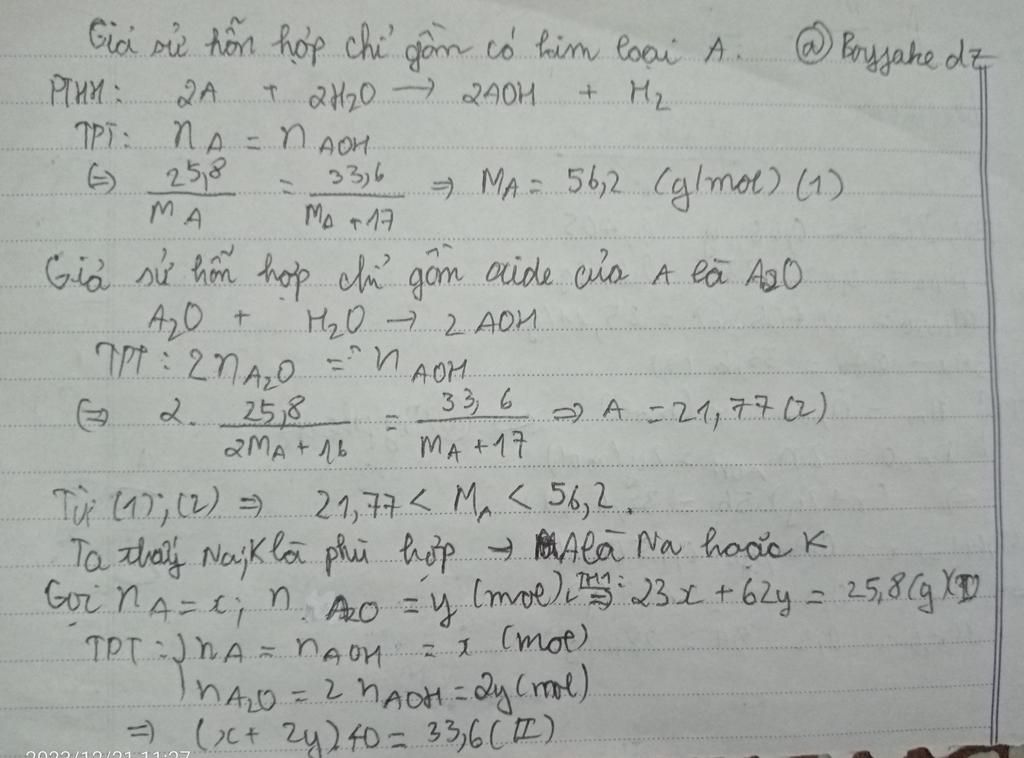 Giả sử hỗn hợp chỉ gồm có kim loại A. @Boyjake dz
PTHH: 2A + 2H₂O → 2AOH + H₂
TPT: nA = nAOH
(=) 25,8/MA = 33,6/(MA + 17) ⇒ MA = 56,2 (g/mol) (1)
Giả sử hỗn hợp chỉ gồm oxide của A là A₂O
A₂O + H₂O → 2 AOH
TPT: 2nA₂O = nAOH
(=) 2. 25,8/(2MA + 16) = 33,6/(MA + 17) ⇒ A = 21,77 (2)
Từ (1);(2) ⇒ 21,77 < MA < 56,2.
Ta thấy Na;K là phù hợp → A là Na hoặc K
Gọi nA = x; nA₂O = y (mol). TH1: ⇒ 23x + 62y = 25,8 (g) (I)
TPT: nA = nAOH = x (mol)
nA₂O = 2 nAOH = 2y (mol)
⇒ (x + 2y) 40 = 33,6 (II)
2023/12/21 11:27